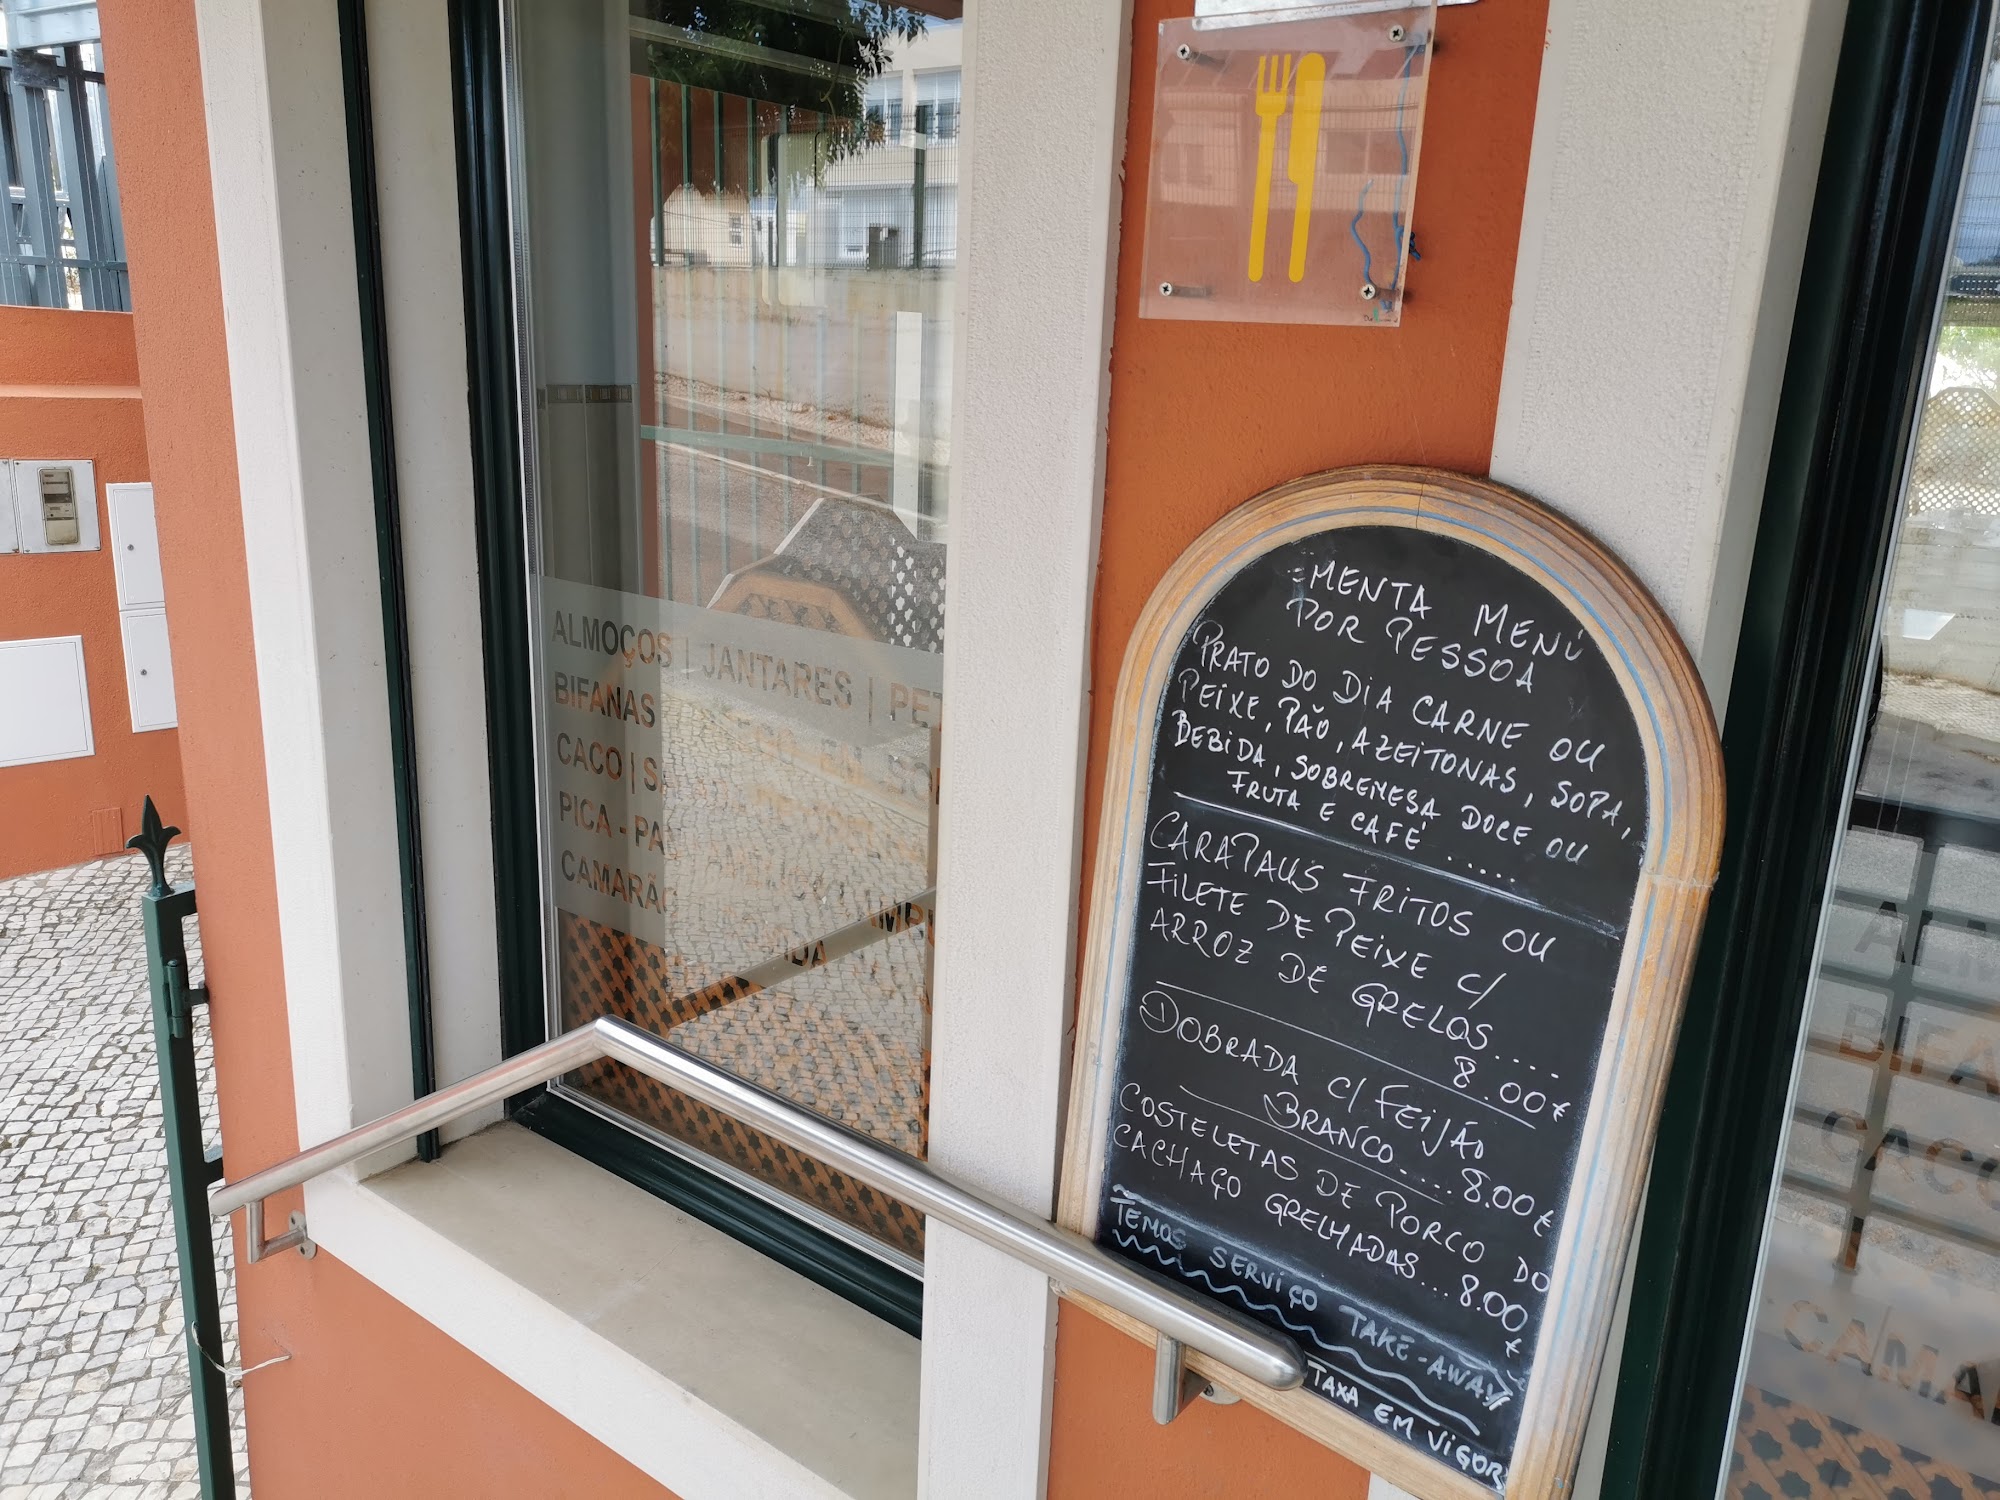 ALMOÇOS | JANTARES | PET
BIFANAS
CACO | S
PICA - PA
CAMARÃO
MENTA MENÚ
POR PESSOA
PRATO DO DIA CARNE OU
PEIXE, PÃO, AZEITONAS, SOPA,
BEBIDA, SOBREMESA DOCE OU
FRUTA E CAFÉ .....
CARAPAUS FRITOS OU
FILETE DE PEIXE C/
ARROZ DE GRELOS....
8.00€
DOBRADA C/ FEIJÃO
BRANCO.... 8.00€
COSTELETAS DE PORCO DO
CACHAÇO GRELHADAS... 8.00
€
TEMOS SERVIÇO TAKE-AWAY
TAXA EM VIGOR
BIFA
CACO
CAMAR